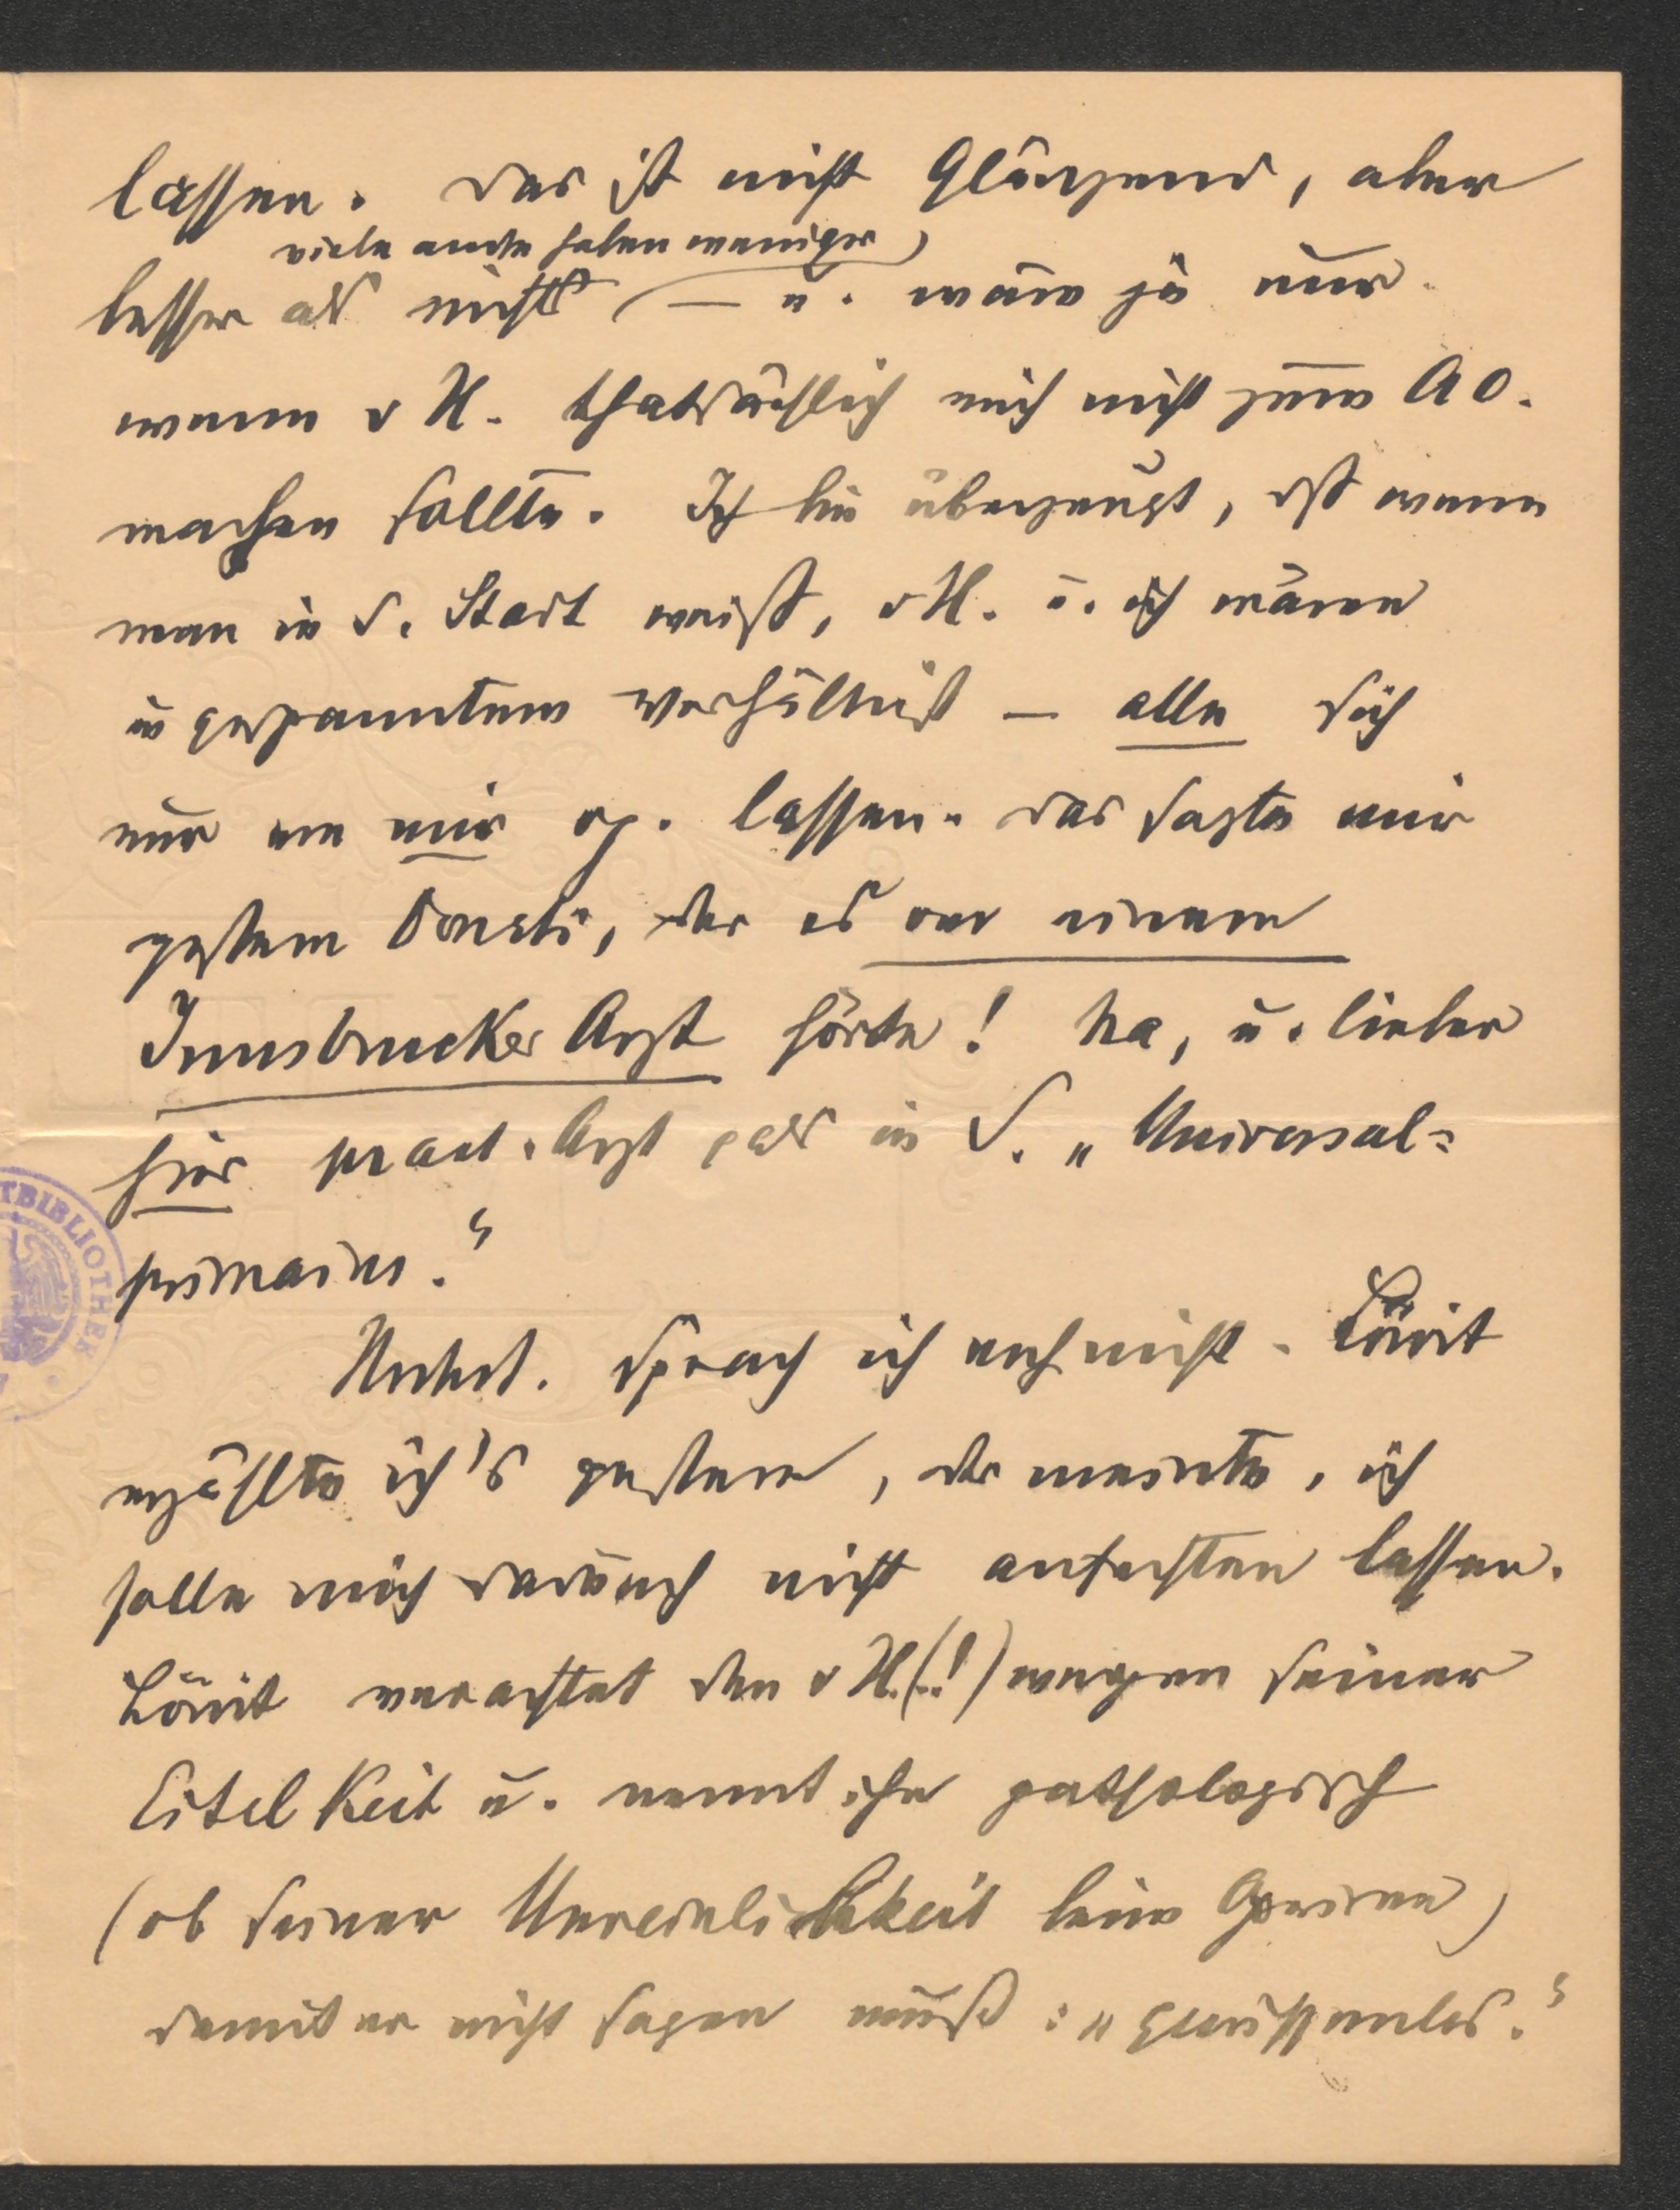 lassen. Das ist nicht Glänzend, aber
viele andre haben weniger
besser als nichts — u. wäre ja nur
wenn v H. thatsächlich mich nicht zum AO.
machen sollte. Ich bin überzeugt, dß wenn
man in d. Stadt weiß, v H. u. ich wären
in gespanntem Verhältniß — alle sich
nur von mir op. lassen. Das sagte mir
gestern Donati, der es von einem
Innsbrucker Arzt hörte! Na, u. lieber
hier pract. Arzt als in S. „Universal-
primarius."
sprach ich noch nicht. Löwit
erzählte ich's gestern, der meinte, ich
solle mich dadurch nicht anfechten lassen.
Löwit verachtet den v H. (!) wegen seiner
Eitelkeit u. nennt ihn pathologisch
(ob seiner Unreinlichkeit beim
damit er nicht sagen muß: „gewissenlos."
BIBLIOTHEK